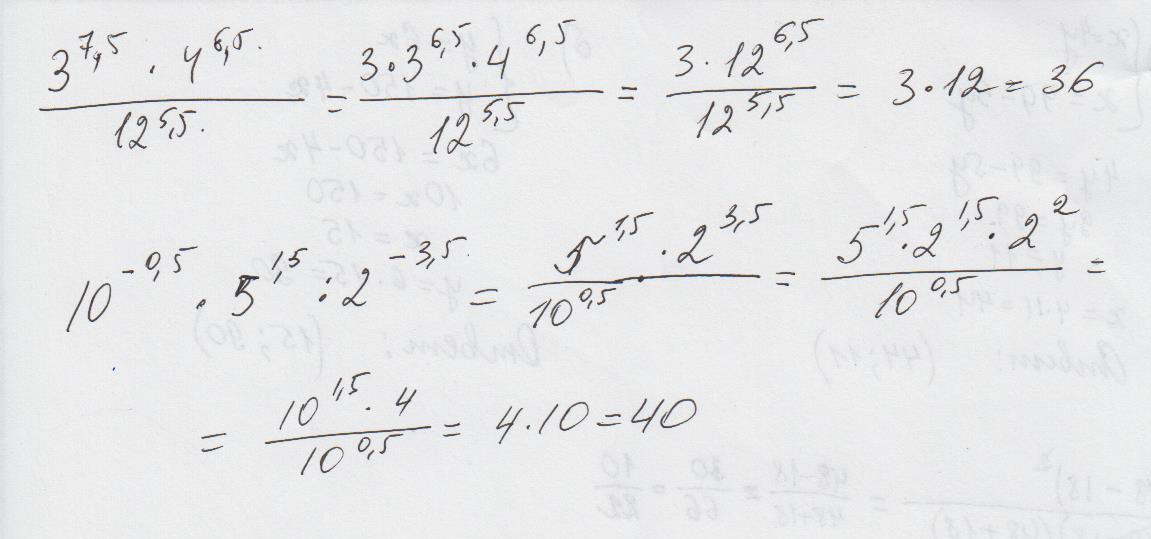 3^{7,5} · 4^{6,5} / 12^{5,5} = 3·3^{6,5}·4^{6,5} / 12^{5,5} = 3·12^{6,5} / 12^{5,5} = 3·12 = 36
10^{-0,5} · 5^{1,5} : 2^{-3,5} = 5^{1,5} · 2^{3,5} / 10^{0,5} = 5^{1,5}·2^{1,5}·2^{2} / 10^{0,5} =
= 10^{1,5}·4 / 10^{0,5} = 4·10 = 40